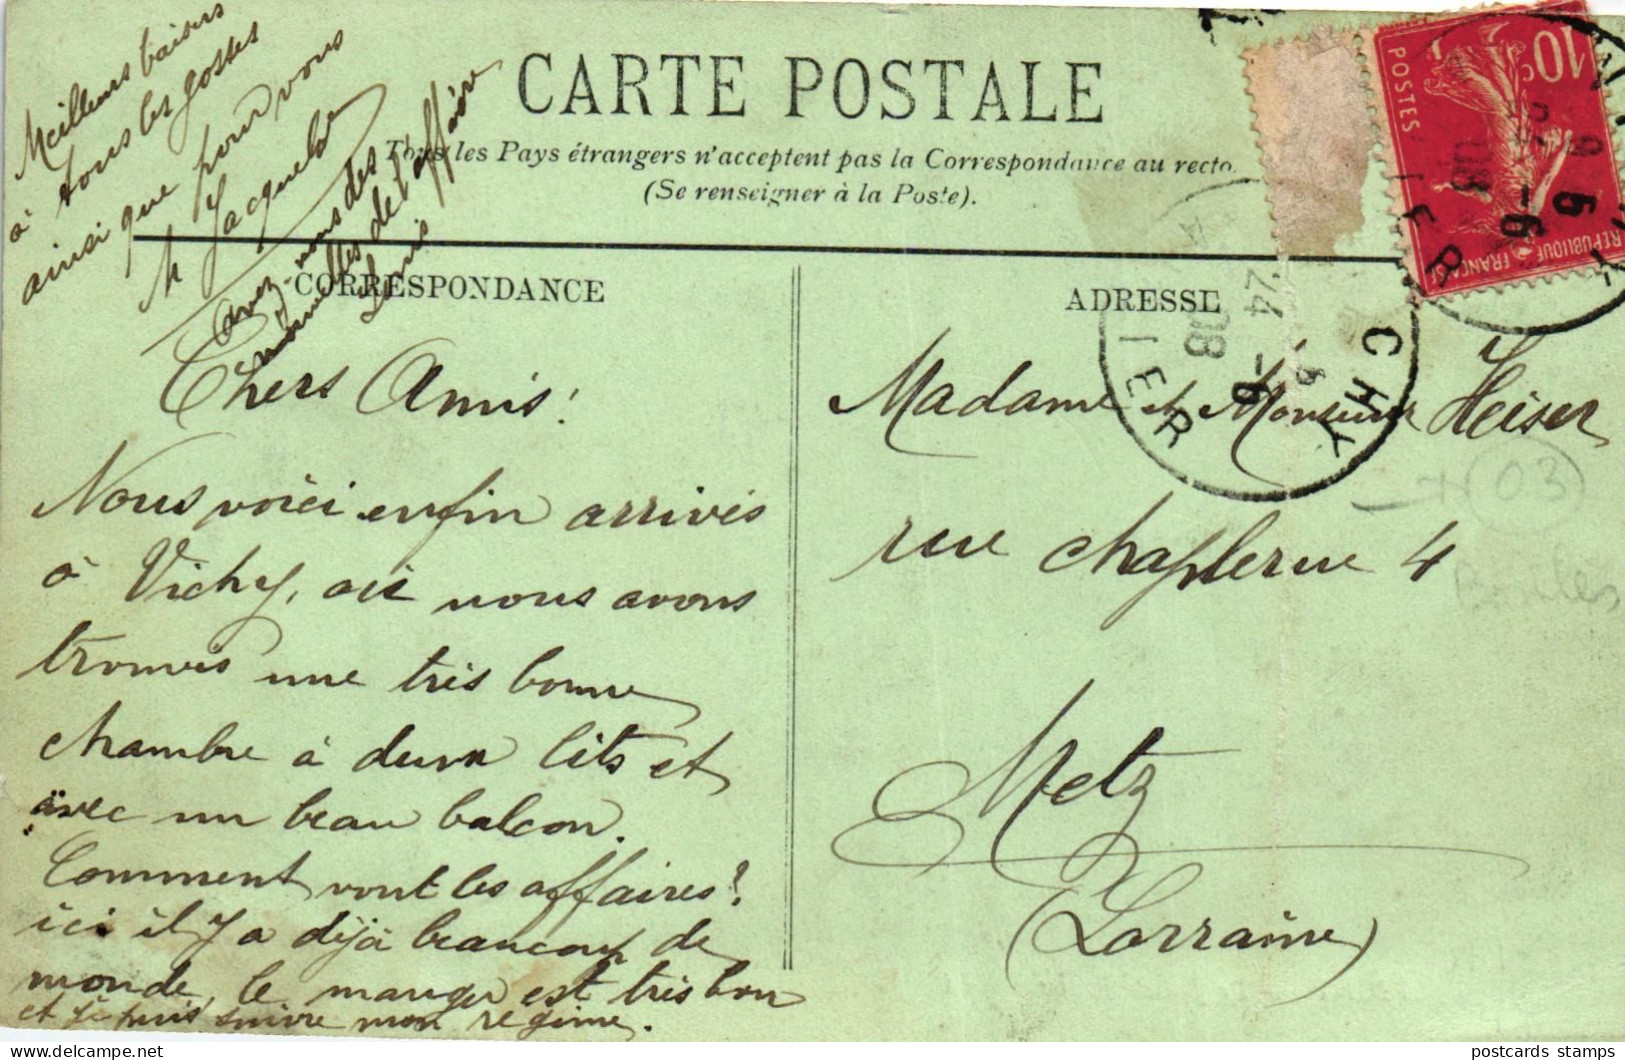 Meilleurs baisers
à tous les gosses
ainsi que pour vous
M Jacquelot
avez-vous des
nouvelles de l'affaire
Louis
CARTE POSTALE
Tous les Pays étrangers n'acceptent pas la Correspondance au recto.
(Se renseigner à la Poste).
CORRESPONDANCE
Chers Amis!
Nous voici enfin arrivés
à Vichy, où nous avons
trouvés une très bonne
chambre à deux lits et
avec un beau balcon.
Comment vont les affaires?
ici il y a déjà beaucoup de
monde, le manger est très bon
et je puis suivre mon régime.
10c
POSTES
REPUBLIQUE FRANÇAISE
CHY
IER
24
6
08
ADRESSE
Madame et Monsieur Heiser
rue Chaplerue 4
Metz
(Lorraine)
03
postcards stamps